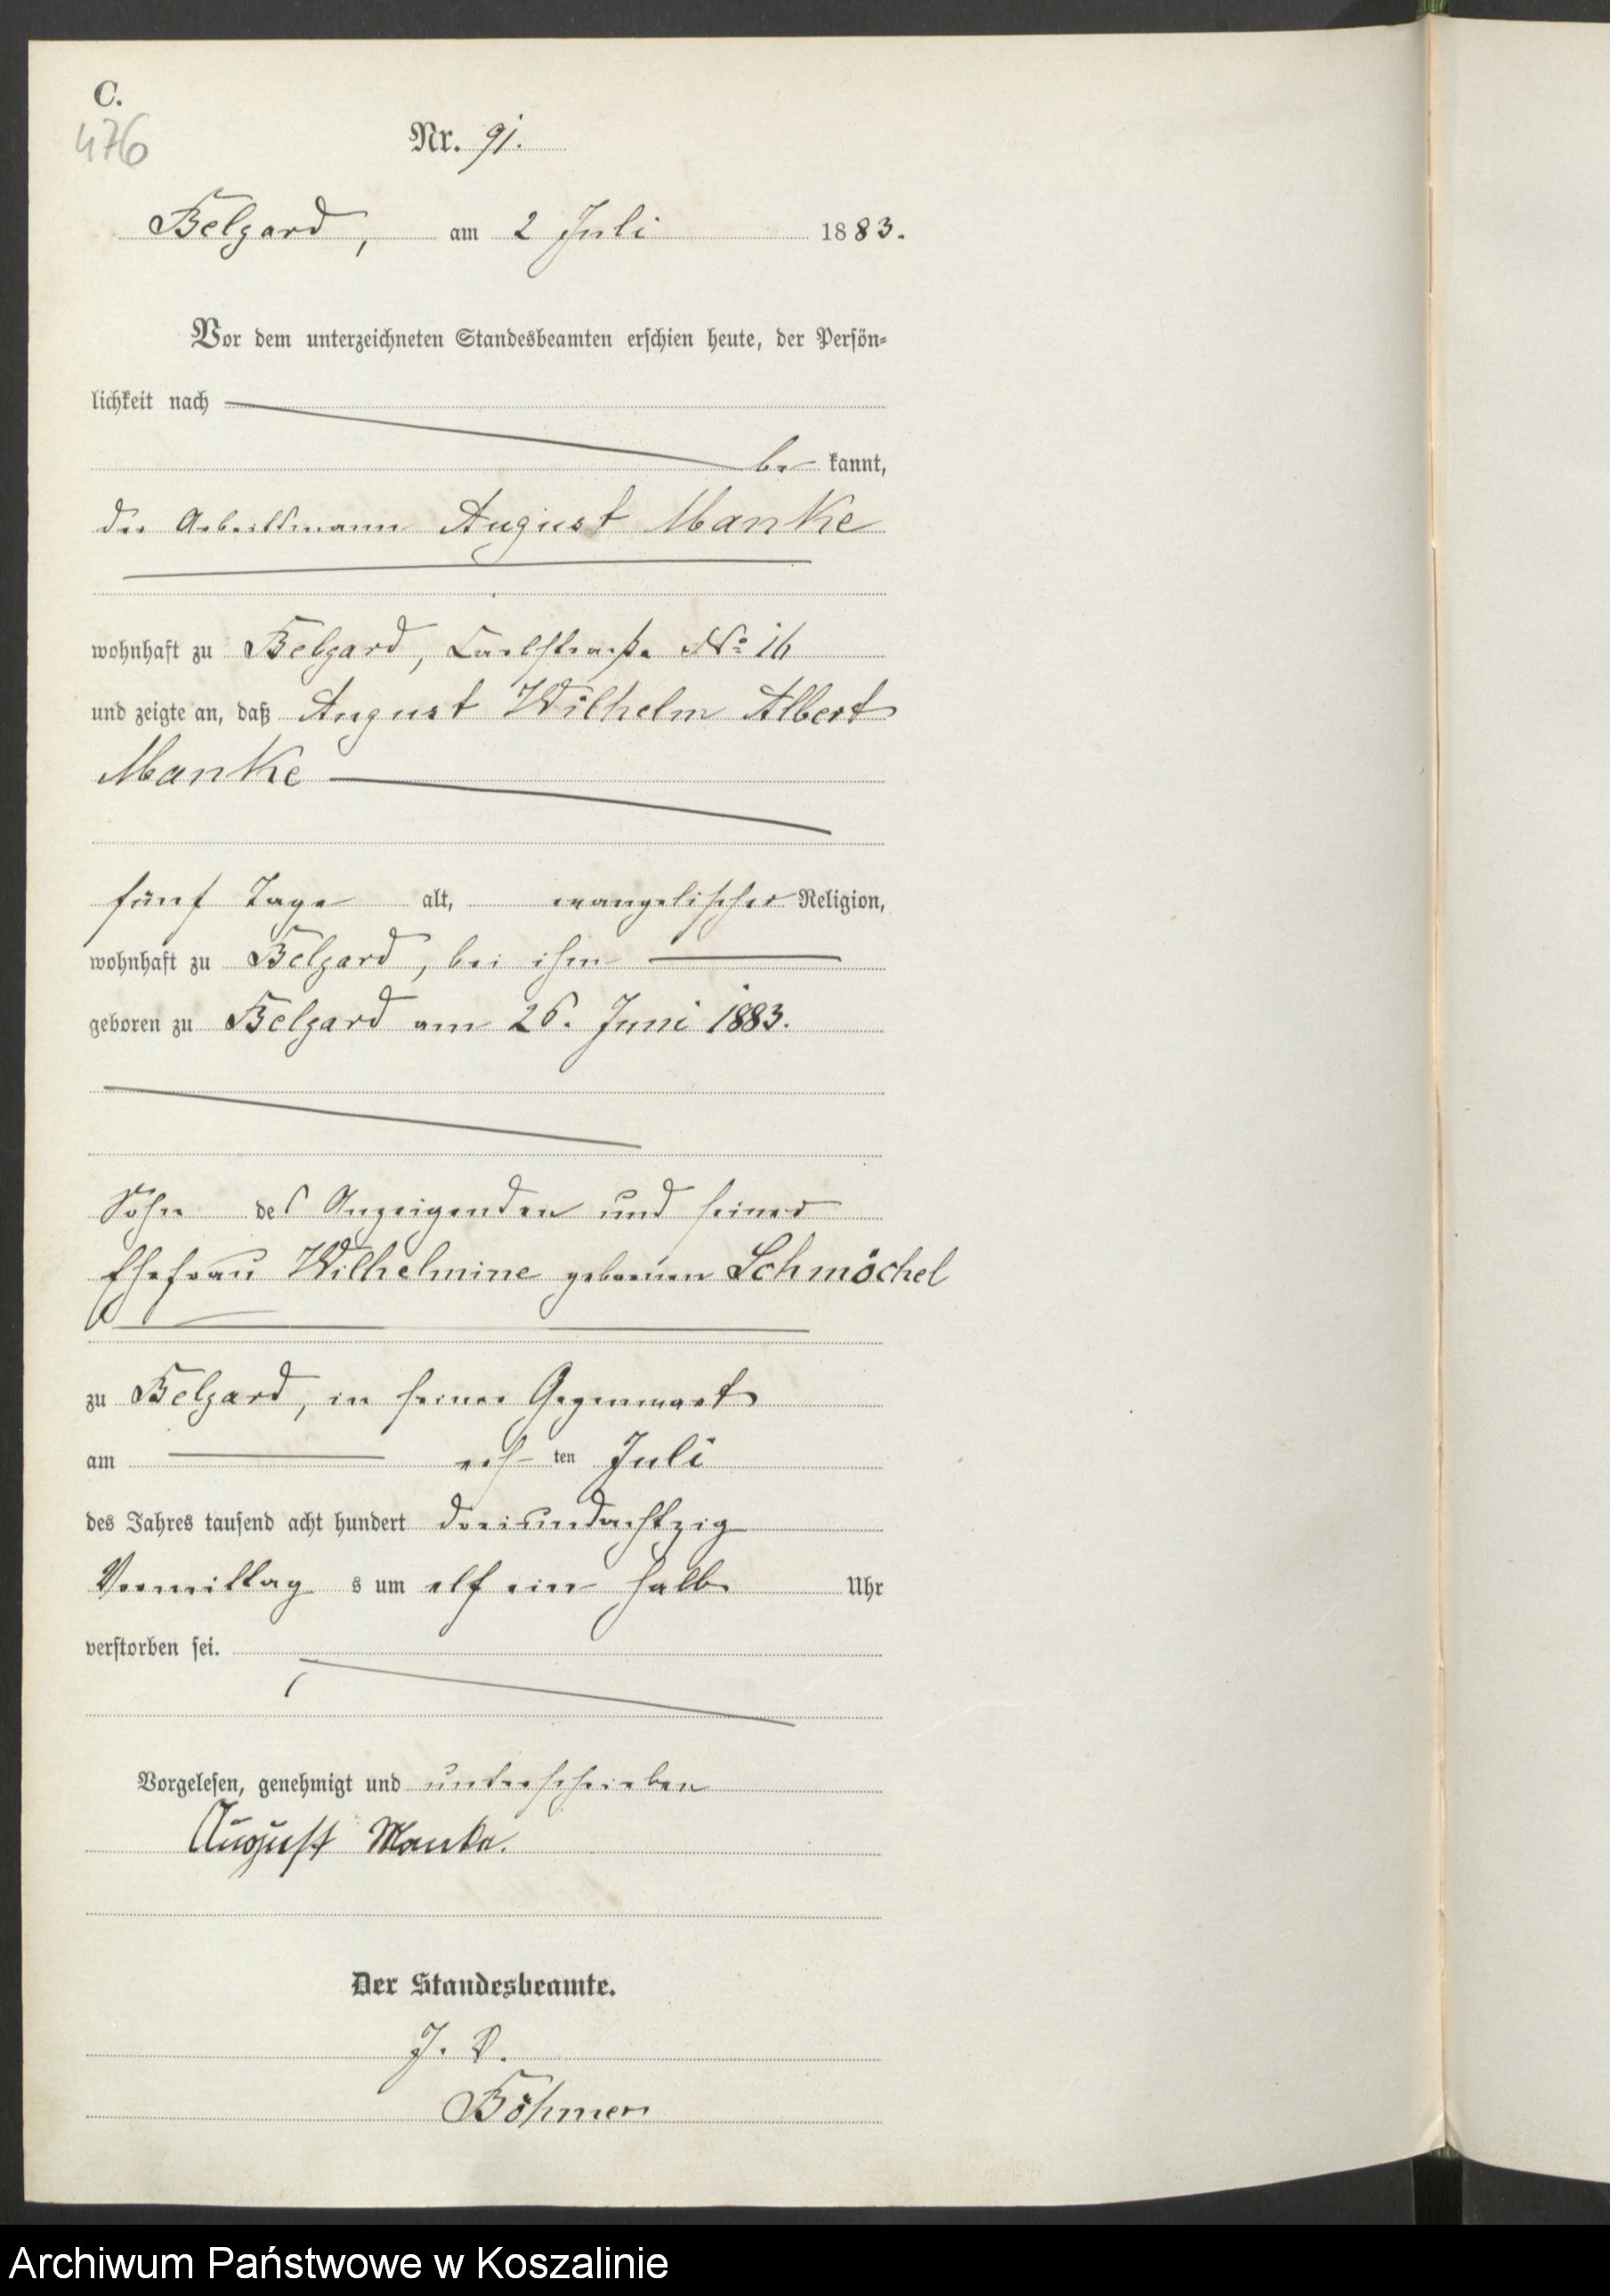 C.
476
Nr. 91.
Belgard, am 2 Juli 1883.
Vor dem unterzeichneten Standesbeamten erschien heute, der Persön-
lichkeit nach
be kannt,
der Arbeitsmann August Manke
wohnhaft zu Belgard, Carlstraße No 16
und zeigte an, daß August Wilhelm Albert
Manke
fünf Tage alt, evangelischer Religion,
wohnhaft zu Belgard, bei ihm
geboren zu Belgard am 26. Juni 1883.
Sohn des Anzeigenden und seiner
Ehefrau Wilhelmine geborenen Schmöckel
zu Belgard, in seiner Gegenwart
am ersten Juli
des Jahres tausend acht hundert dreiundachtzig
Vormittag s um elf ein halb Uhr
verstorben sei.
Vorgelesen, genehmigt und unterschrieben
August Manke.
Der Standesbeamte.
J. V.
Böhmer
Archiwum Państwowe w Koszalinie